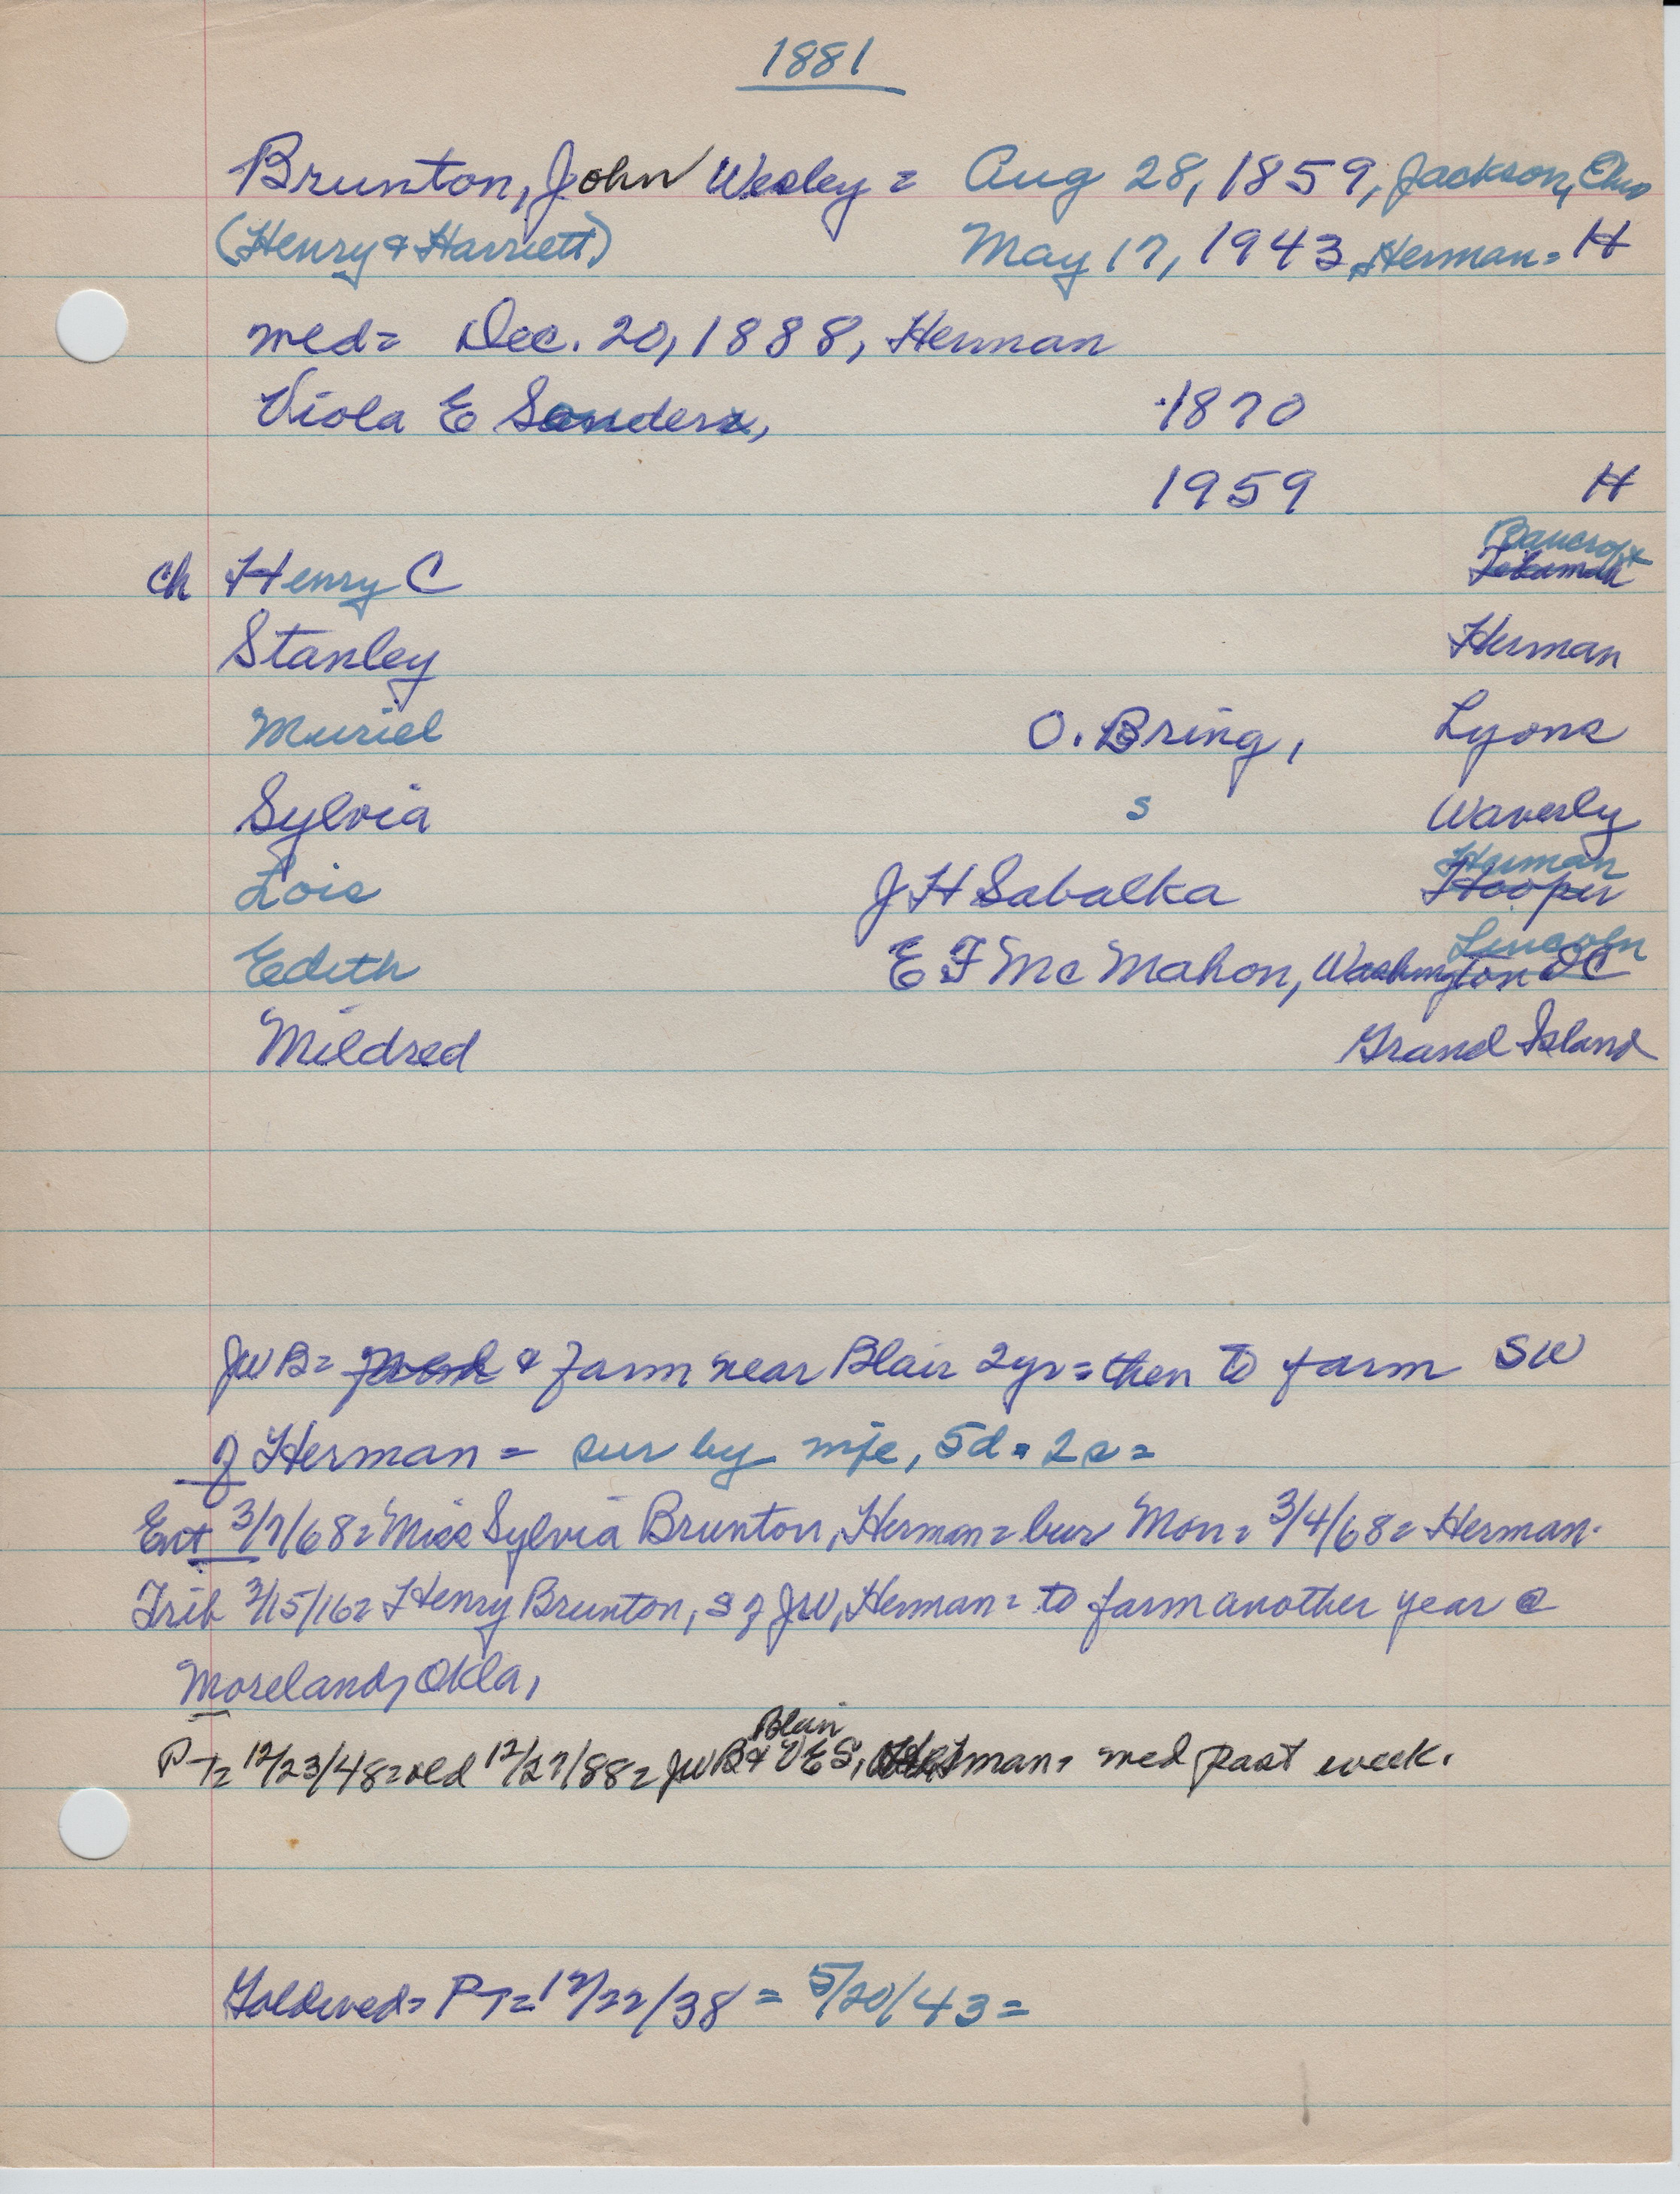 1881
Brunton, John Wesley = Aug 28, 1859, Jackson, Ohio
(Henry & Harriett) May 17, 1943, Herman = H
med = Dec. 20, 1888, Herman
Viola E Sanders, 1870
1959 H
Bancroft
ch Henry C Tekamah
Stanley Herman
Muriel O. Bring, Lyons
Sylvia s Waverly
Herman
Lois J H Sabalka Hooper
Lincoln
Edith E F Mc Mahon, Washington DC
Mildred Grand Island
JWB = & farm near Blair 2 yr = then to farm SW
of Herman = sur by wife, 5d = 2s =
Ent 3/7/68 = Miss Sylvia Brunton, Herman = bur Mon = 3/4/68 = Herman.
Trib 3/15/16 = Henry Brunton, s of JW, Herman = to farm another year @
Moreland, Okla,
Blair
PT = 12/23/48 = old 12/27/88 = JWB & VES, Herman, med past week.
Goldwed = PT = 12/22/38 = 5/20/43 =